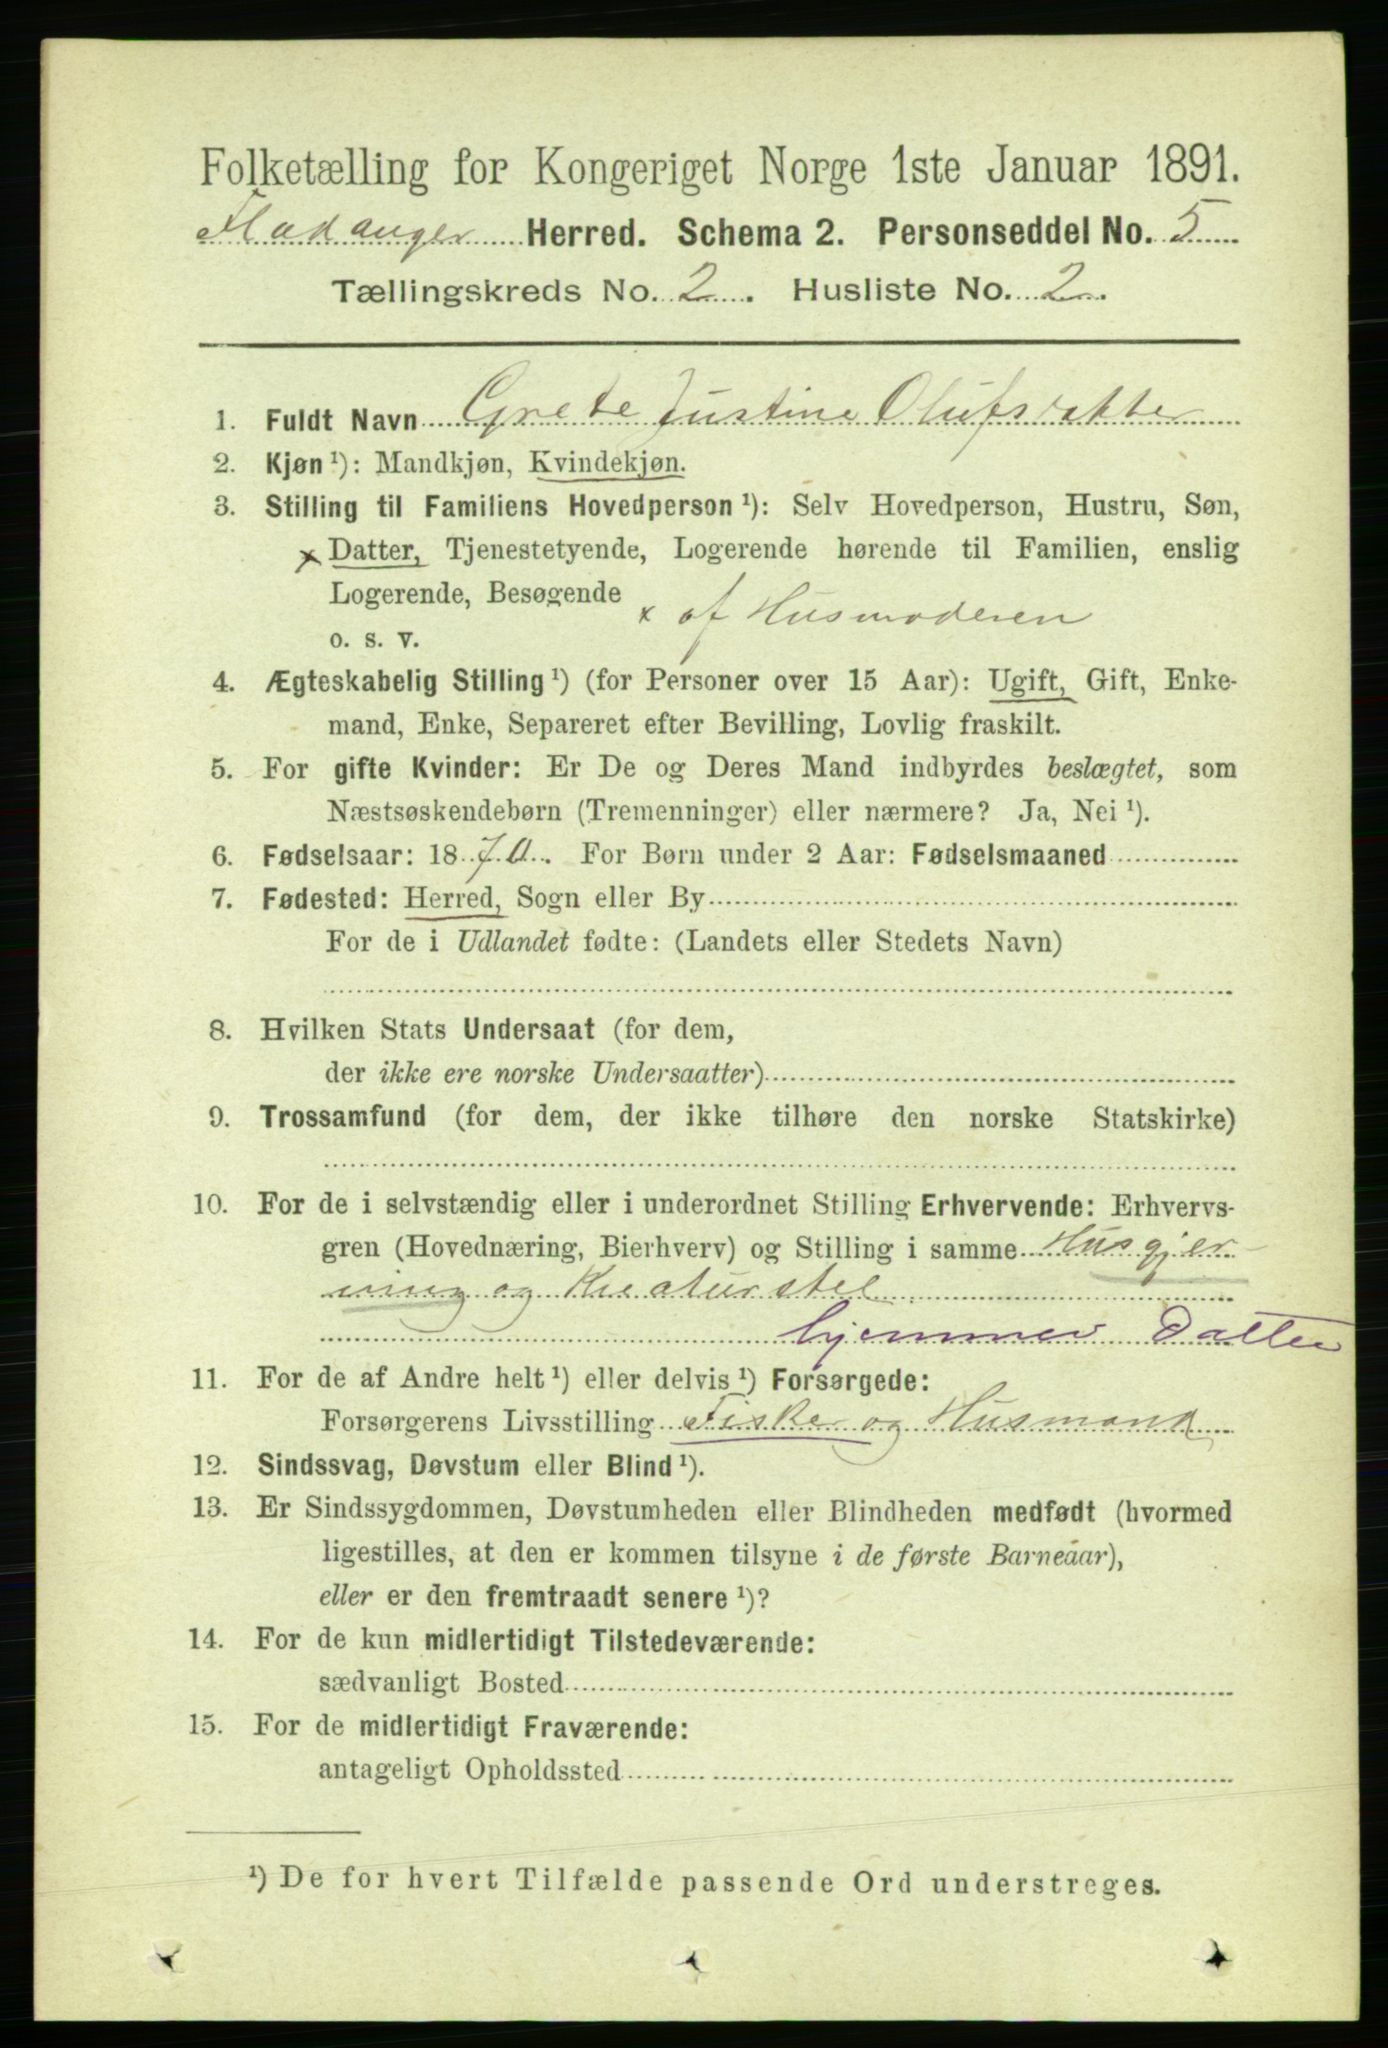 Folketælling for Kongeriget Norge 1ste Januar 1891.
Fladanger Herred. Schema 2. Personseddel No. 5
Tællingskreds No. 2. Husliste No. 2.
1. Fuldt Navn Grete Justine Olufsdatter
2. Kjøn ¹): Mandkjøn, Kvindekjøn.
3. Stilling til Familiens Hovedperson ¹): Selv Hovedperson, Hustru, Søn,
x Datter, Tjenestetyende, Logerende hørende til Familien, enslig
Logerende, Besøgende x af Husmoderen
o. s. v.
4. Ægteskabelig Stilling ¹) (for Personer over 15 Aar): Ugift, Gift, Enke-
mand, Enke, Separeret efter Bevilling, Lovlig fraskilt.
5. For gifte Kvinder: Er De og Deres Mand indbyrdes beslægtet, som
Næstsøskendebørn (Tremenninger) eller nærmere? Ja, Nei ¹).
6. Fødselsaar: 1870. For Børn under 2 Aar: Fødselsmaaned
7. Fødested: Herred, Sogn eller By
For de i Udlandet fødte: (Landets eller Stedets Navn)
8. Hvilken Stats Undersaat (for dem,
der ikke ere norske Undersaatter)
9. Trossamfund (for dem, der ikke tilhøre den norske Statskirke)
10. For de i selvstændig eller i underordnet Stilling Erhvervende: Erhvervs-
gren (Hovednæring, Bierhverv) og Stilling i samme Husgjer-
ning og Kreaturstel
hjemmev Datter
11. For de af Andre helt ¹) eller delvis ¹) Forsørgede:
Forsørgerens Livsstilling Fisker og Husmand
12. Sindssvag, Døvstum eller Blind ¹).
13. Er Sindssygdommen, Døvstumheden eller Blindheden medfødt (hvormed
ligestilles, at den er kommen tilsyne i de første Barneaar),
eller er den fremtraadt senere ¹)?
14. For de kun midlertidigt Tilstedeværende:
sædvanligt Bosted
15. For de midlertidigt Fraværende:
antageligt Opholdssted
¹) De for hvert Tilfælde passende Ord understreges.